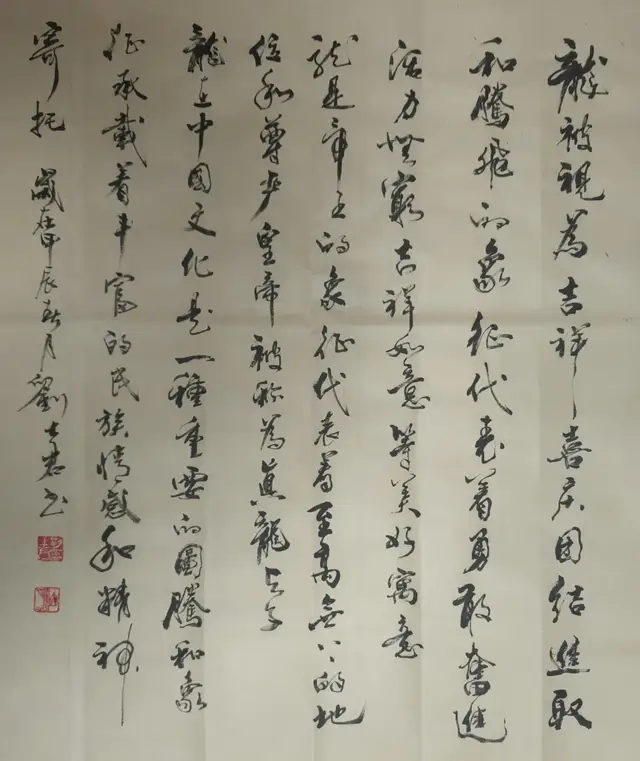 龍被視為吉祥喜庆团结進取
和騰飛的象征代表着勇敢奮進
活力無窮吉祥如意等美好寓意
龍是帝王的象征代表着至高無上的地
位和尊严皇帝被称為真龍天子
龍在中國文化是一種重要的圖騰和象
征承載着丰富的民族情感和精神
寄托 歲在甲辰春月劉 书